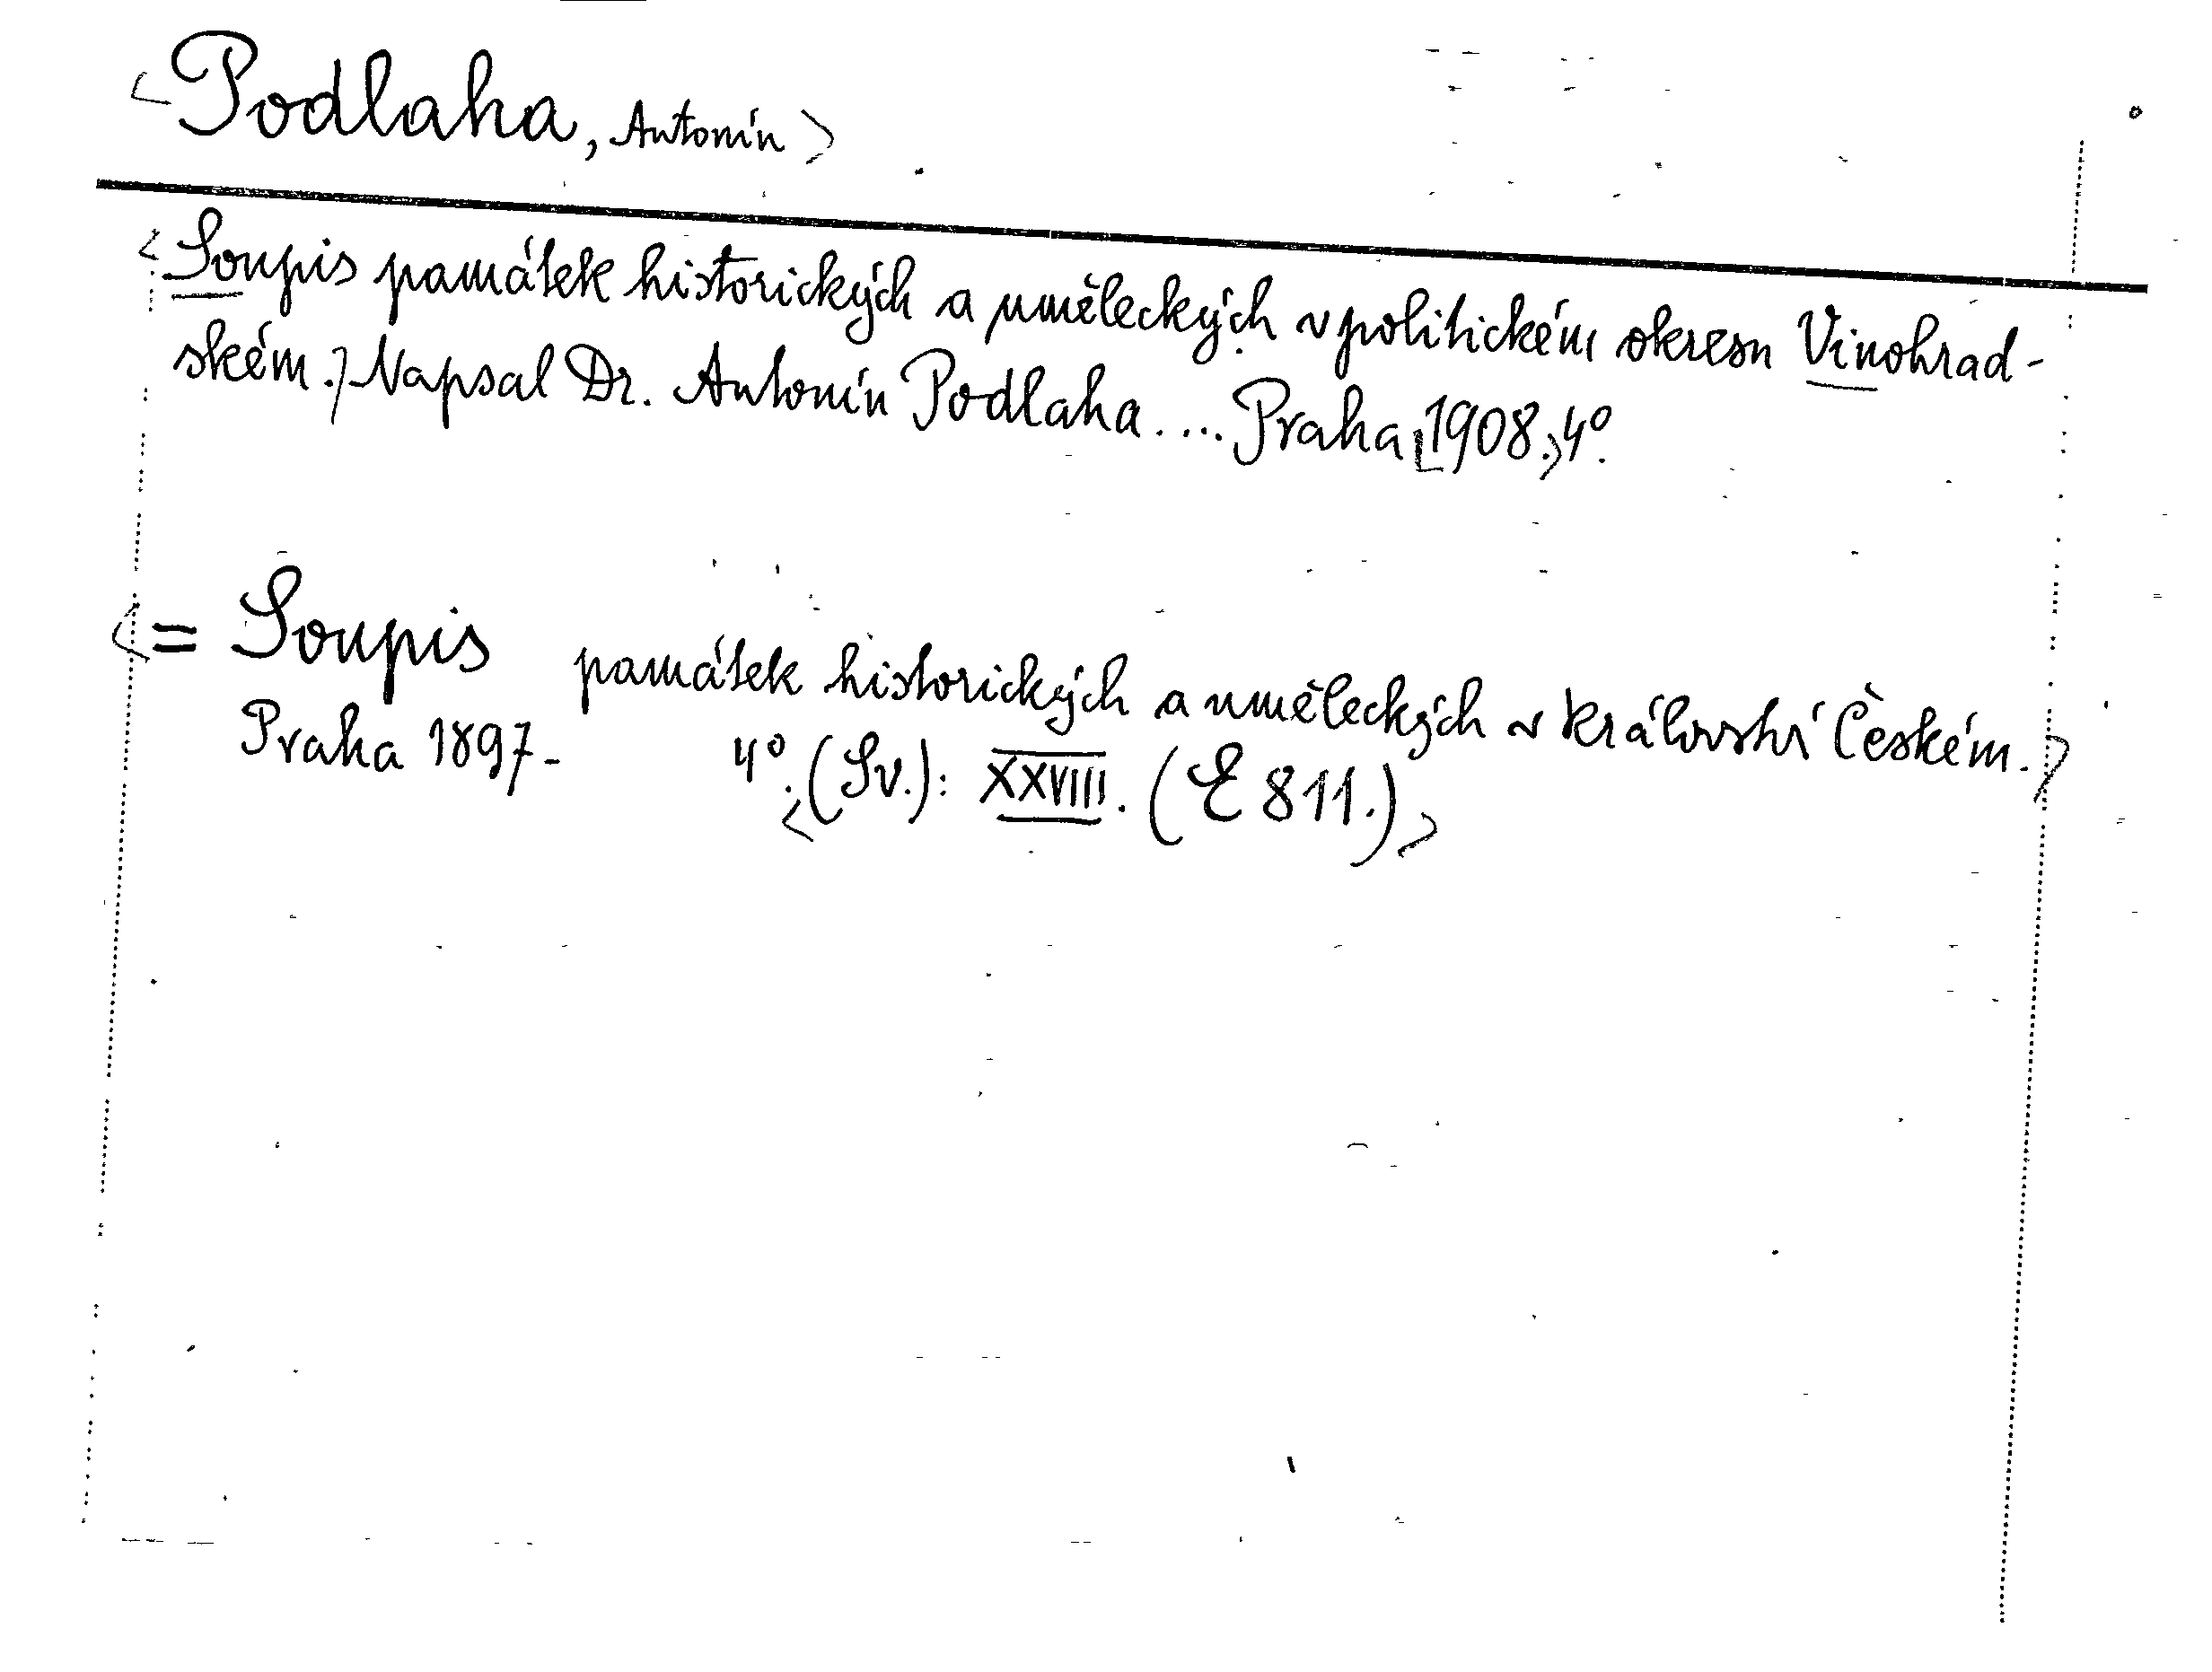 <Podlaha, Antonín>
<Soupis památek historických a uměleckých v politickém okresu Vinohrad-
ském.> Napsal Dr. Antonín Podlaha.... Praha <1908.> 4°.
<= Soupis památek historických a uměleckých v království Českém.>
Praha 1897- 4°. <(Sv.): XXVIII. (E 811.)>